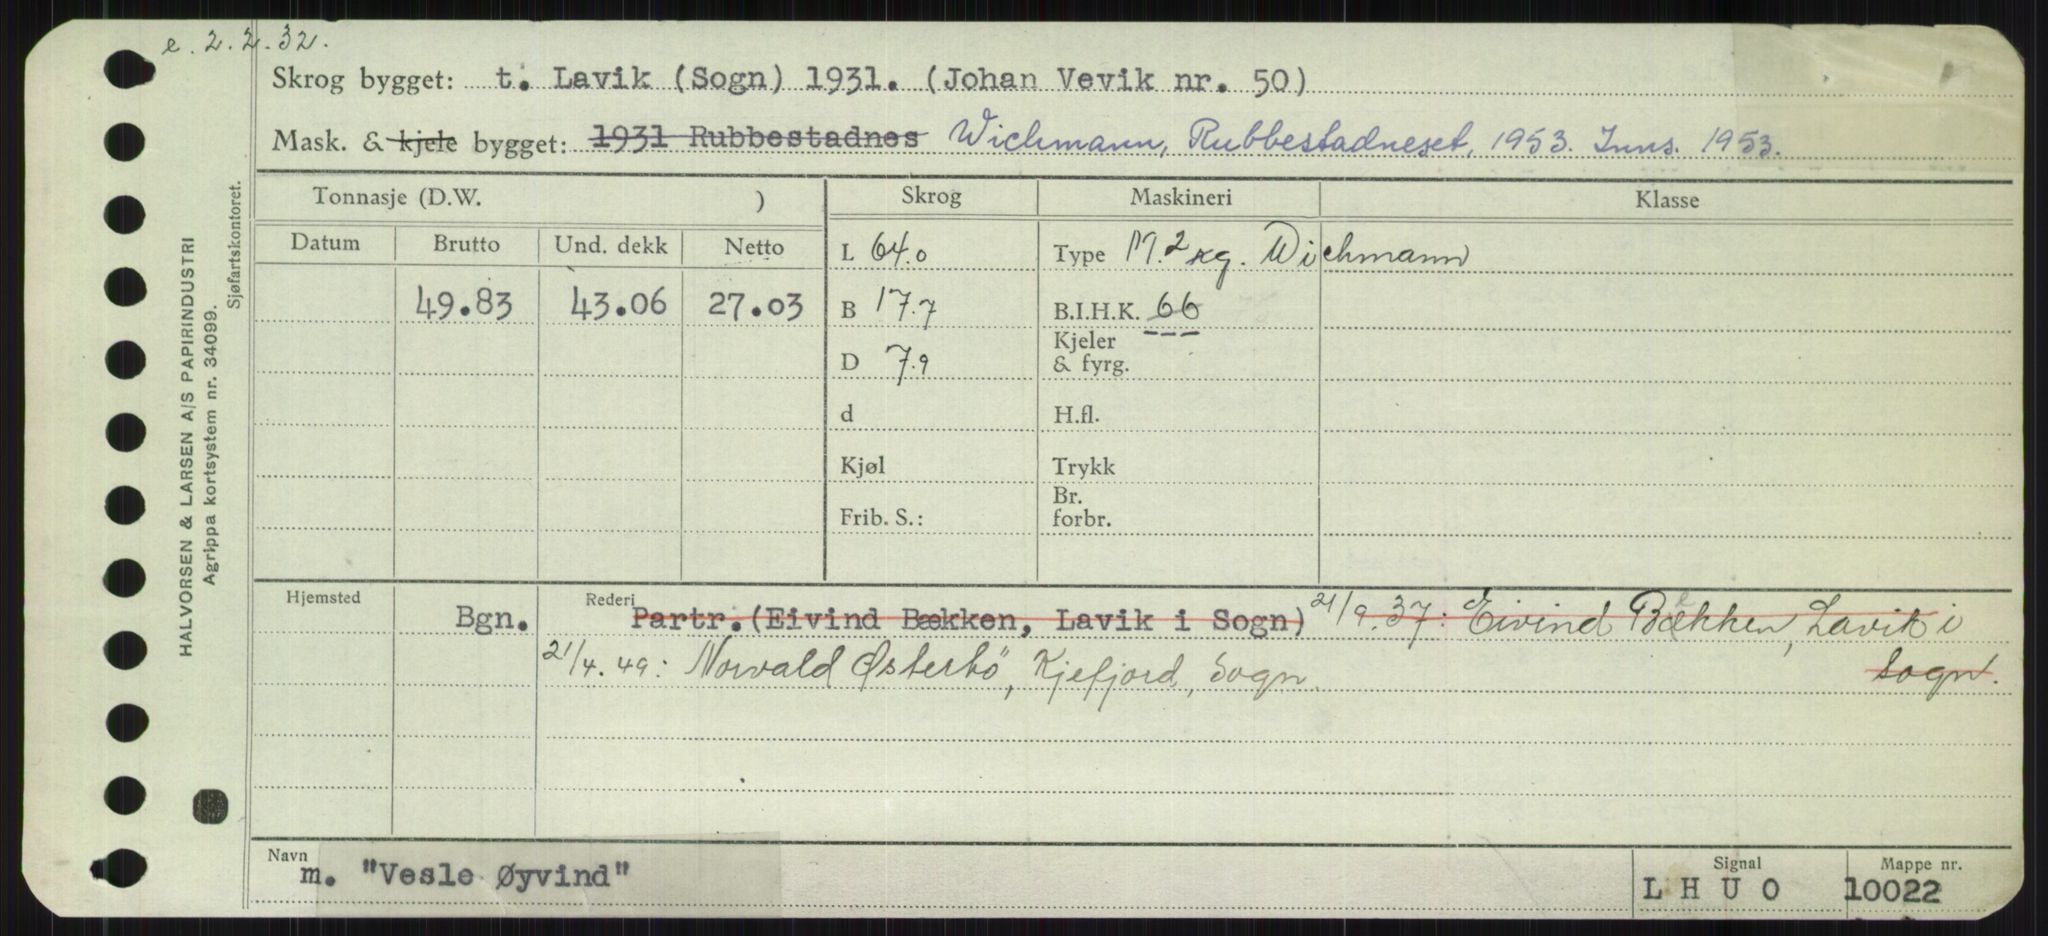 e. 2.2.32.
Skrog bygget: t. Lavik (Sogn) 1931. (Johan Vevik nr. 50)
Mask. & kjele bygget: 1931 Rubbestadnes Wichmann, Rubbestadneset, 1953. Inns. 1953.
Tonnasje (D.W. ) Skrog Maskineri Klasse
Datum Brutto Und. dekk Netto
L 64.0 Type M. 2 sg. Wichmann
49.83 43.06 27.03 B 17.7 B.I.H.K. 66
D 7.9 Kjeler
& fyrg.
d H.fl.
Kjøl Trykk
Frib. S.: Br.
forbr.
Hjemsted Rederi
Bgn. Partr. (Eivind Bækken, Lavik i Sogn) 21/9.37: Eivind Bækken, Lavik i
Sogn.
21/4.49: Norvald Østerbö, Kjefjord, Sogn.
Navn
m. "Vesle Øyvind"
Signal
L H U O
Mappe nr.
10022
HALVORSEN & LARSEN A/S PAPIRINDUSTRI
Agrippa kortsystem nr. 34099.
Sjøfartskontoret.